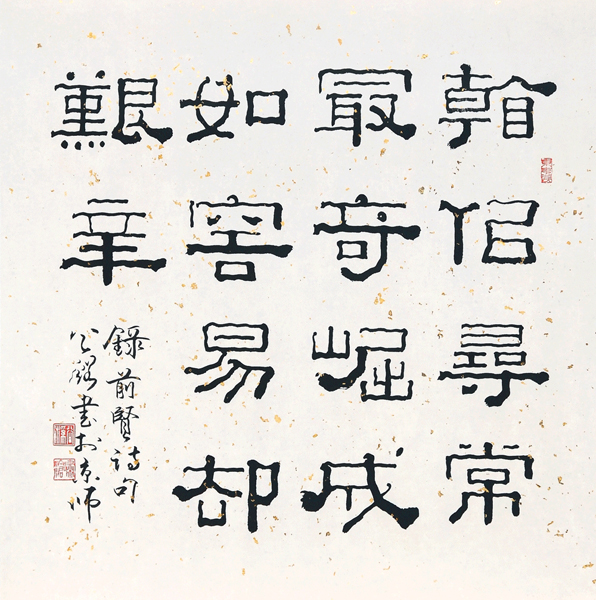 看佀尋常
最奇崛成
如容易却
艱辛
錄前賢詩句
書於京師